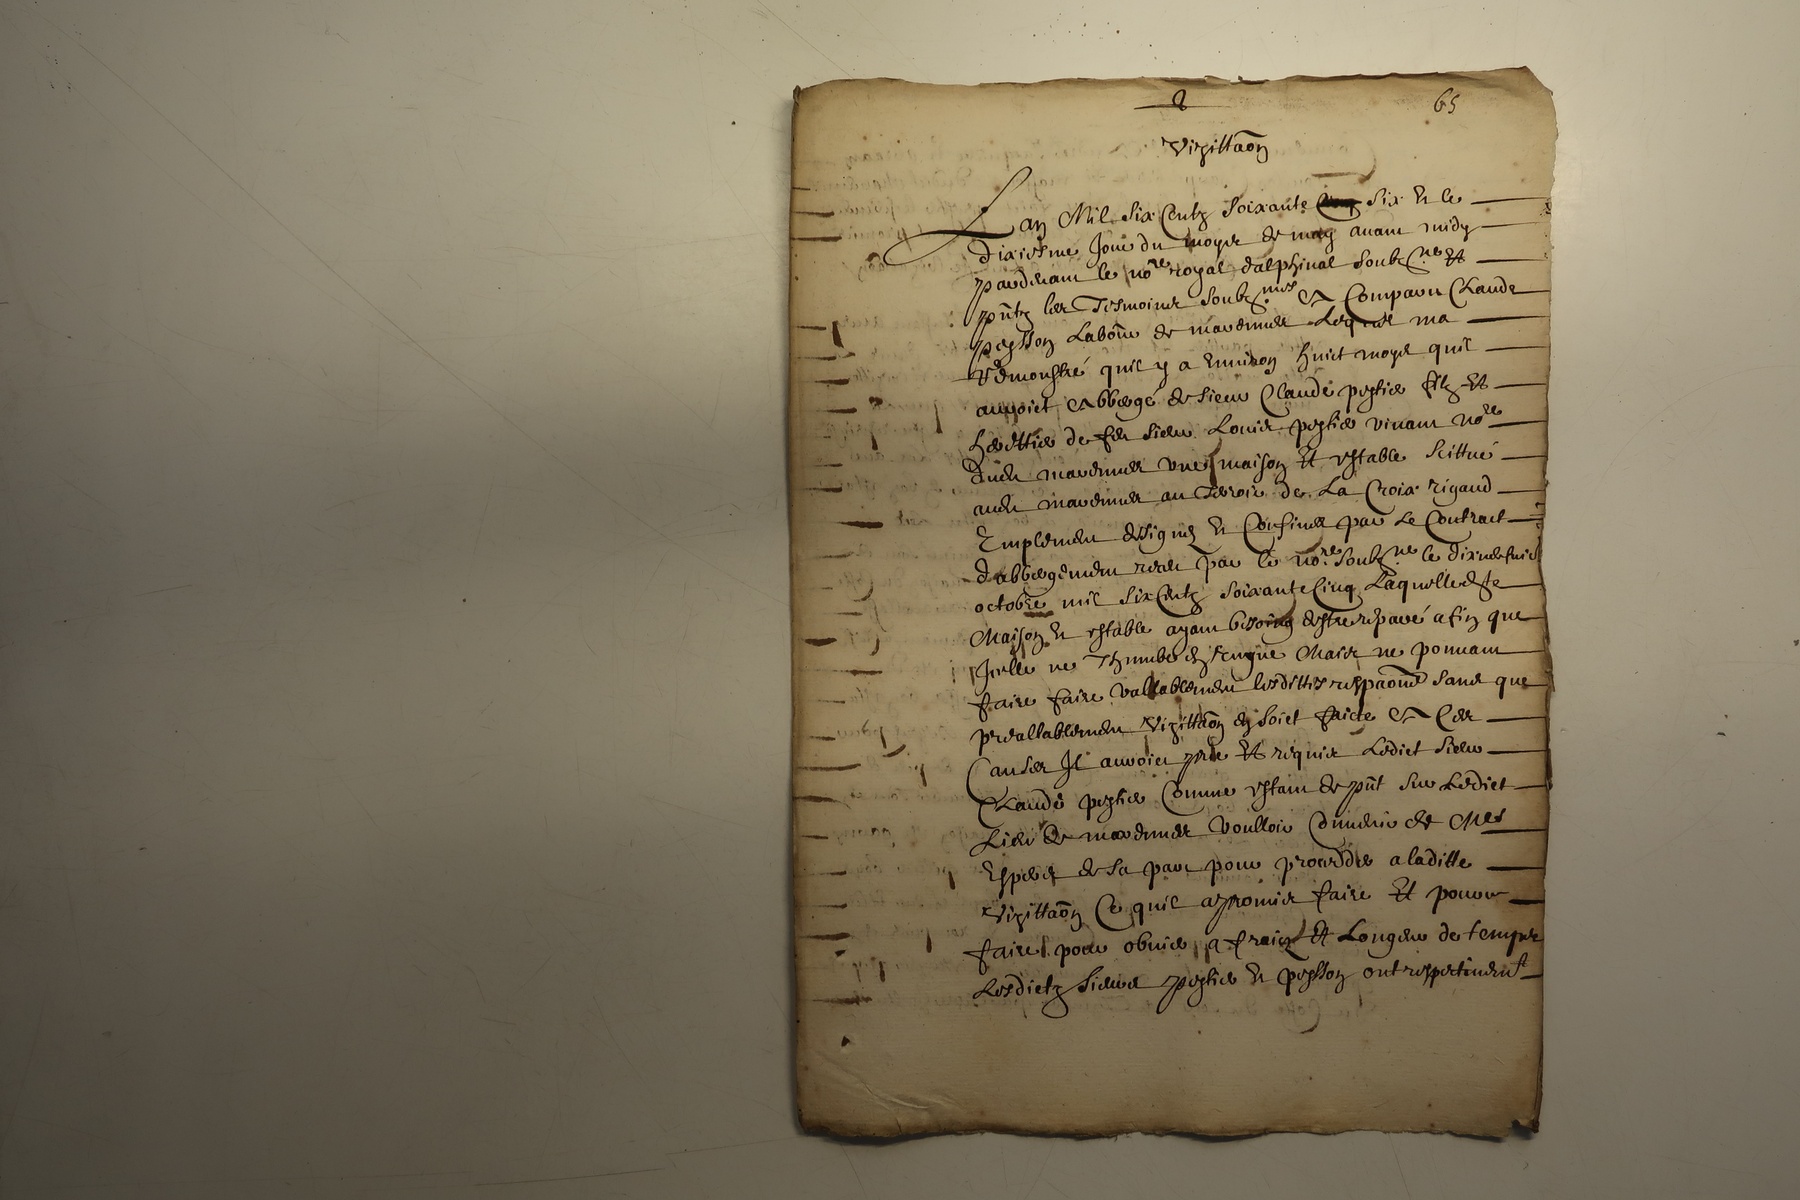 2
65
Vizittaõn
Lan Mil six Centz soixante six Et le
dixiesme Jour du moys de may avant midy
pardevant le nore royal dalphinal soubzne Et
pñtz les Tesmoins soubznés Et Comparu Claude
peysson Labour de marennes Lequel ma
Remonstré quil y a Environ huict moys quil
auroict Abbergé de sieur Claude pestier filz Et
herittier de feu sieur Louis pestier vivant nore
dud marennes une maison Et estable scittué
aud marennes au Terroir de La Croix rigaud
Emplement desigués Et Confines par Le Contract
dabbergement receu par le nore soubzne le dixneufuie
octobre mil six Centz soixante Cinq Laquelle dte
Maison Et estable ayant besoing destre reparé afin que
Icelle ne Thumbe en ruyne Mais ne pouuant
faire faire vallablement lesdittes reppaõns sans que
preallablement Vizittaõn en soiet faicte A Ces
Causes Il auroict prie Et requis Lediet sieur
Claude pestier Comme estant de pñt sur Lediet
Lieu de marennes voulloir Convenir de Mes
Espers de sa part pour proceder a laditte
Vizittaõn Ce quil a promis faire Et pour ce
faire pour obvier a fraiz Et Longeur de temps
Lesdietz sieurs pestier Et peysson ont respectivemt